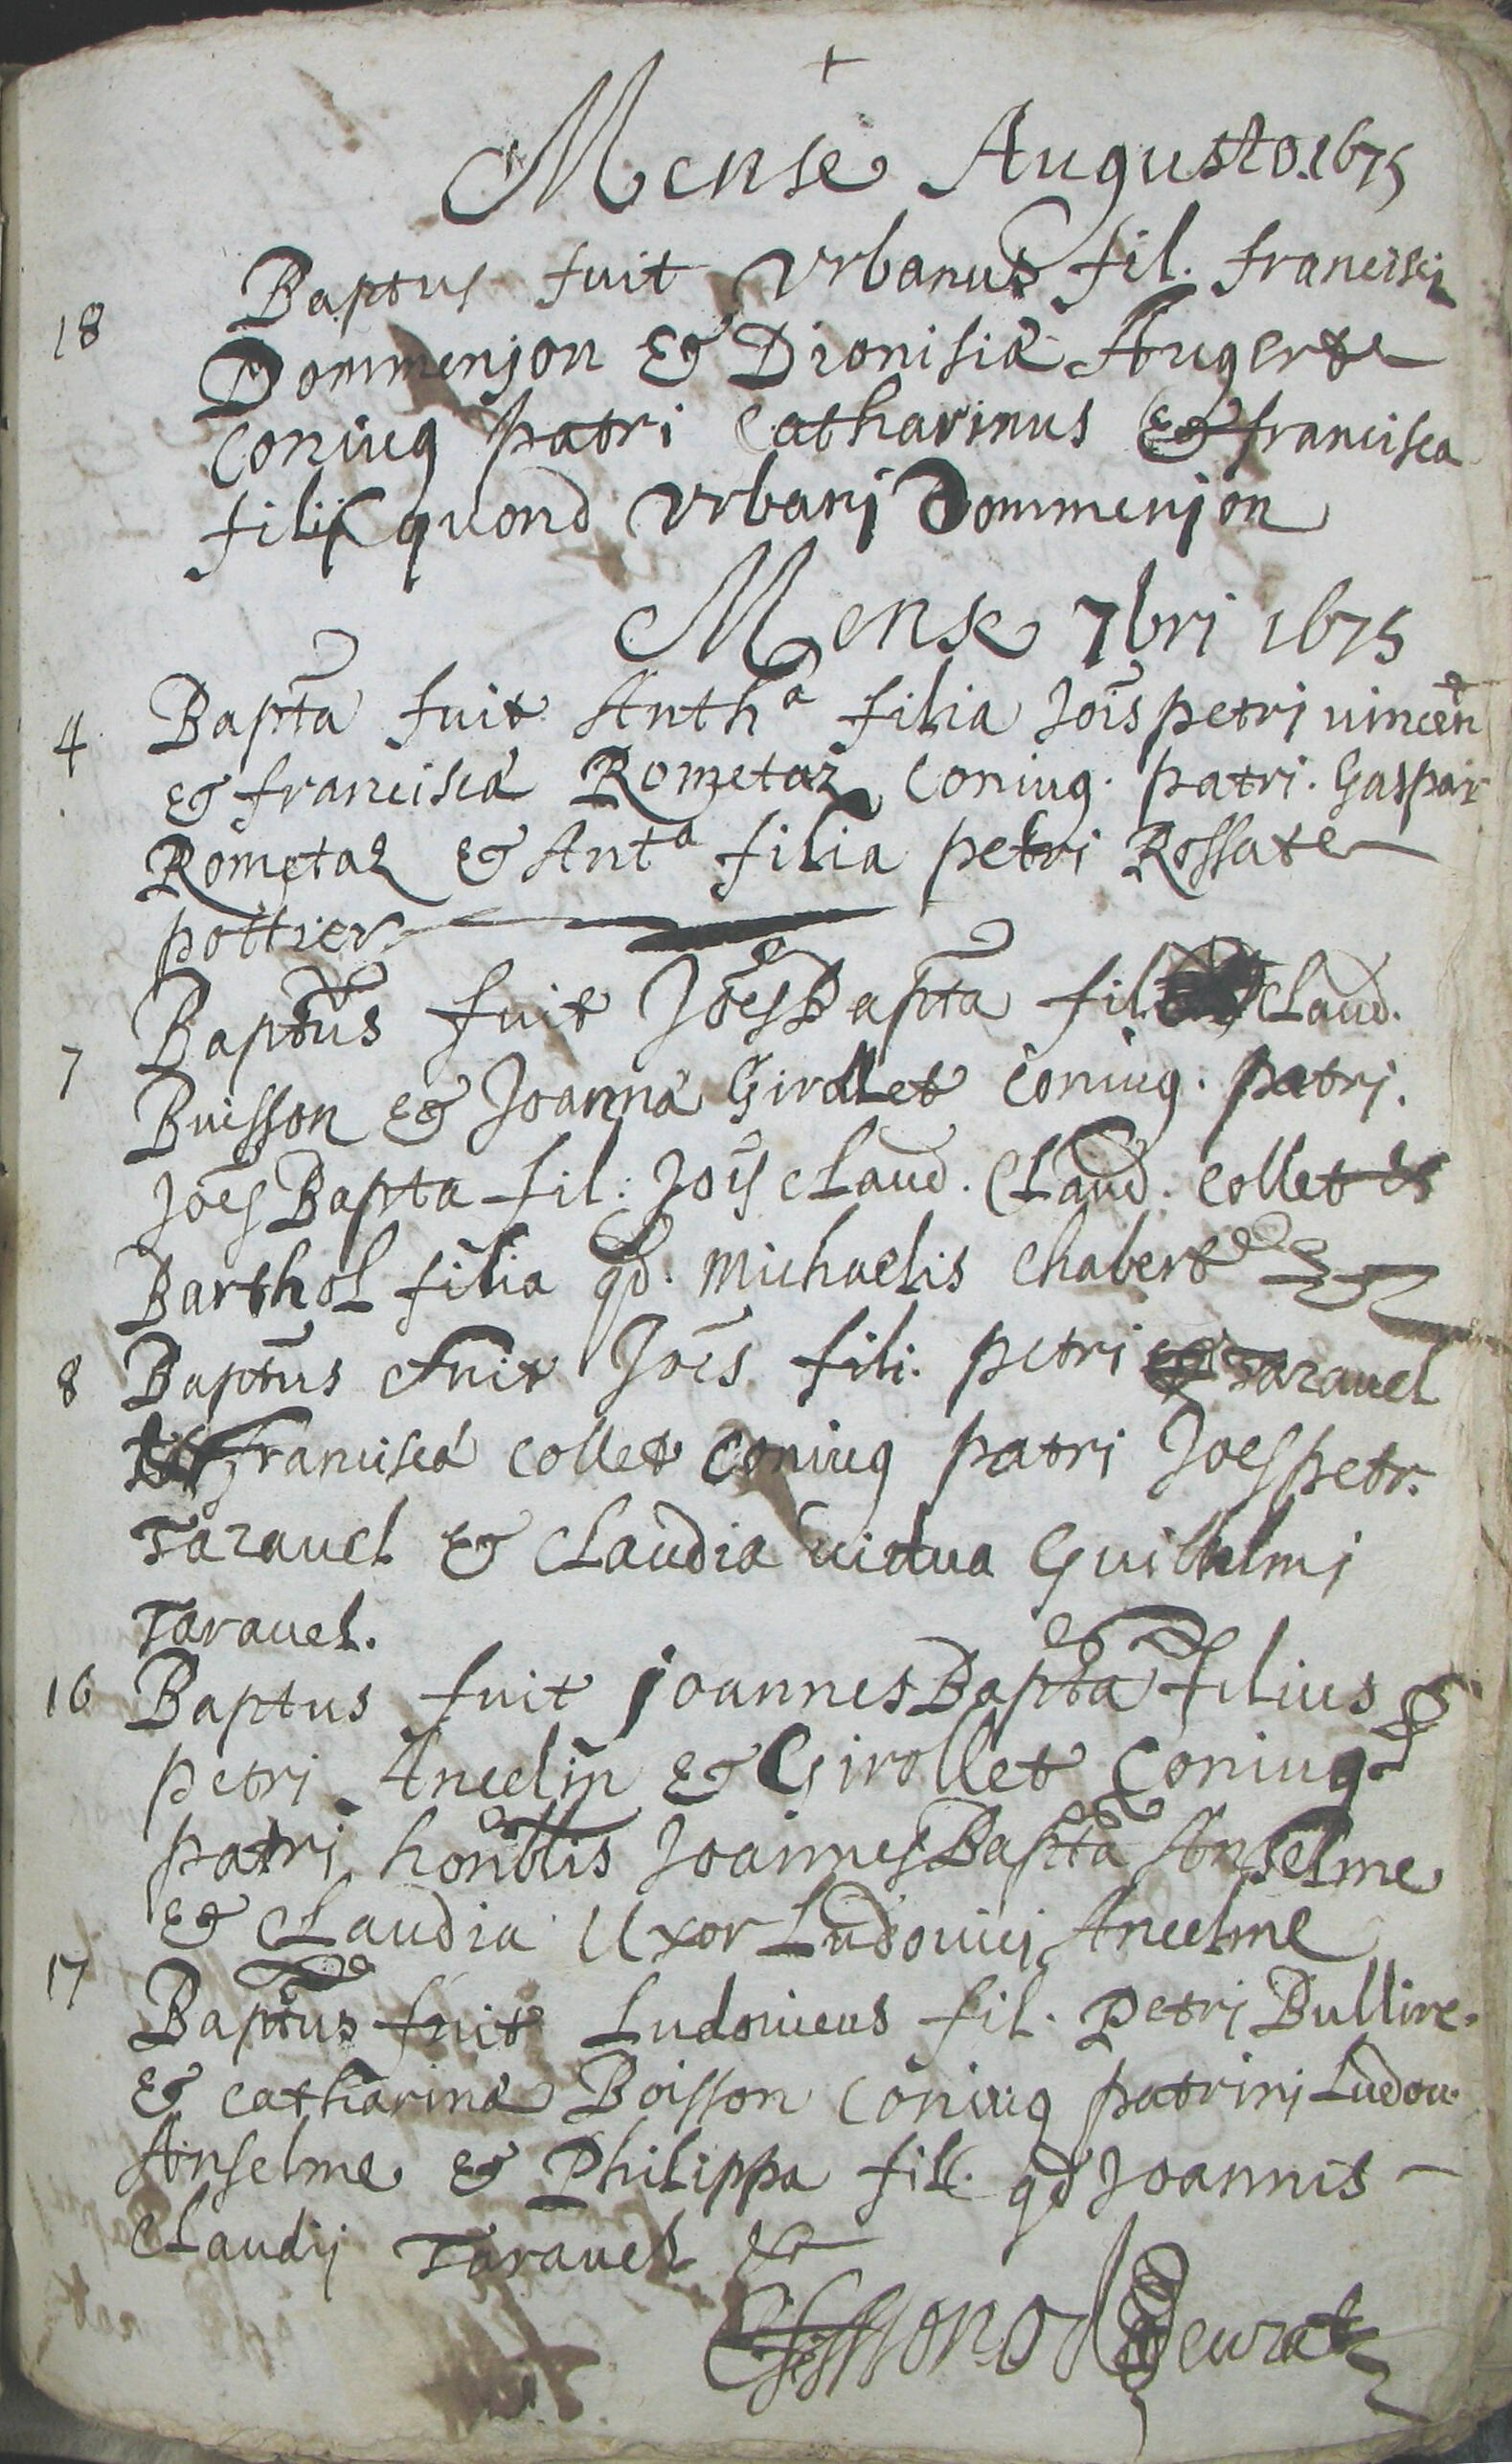 +
Mense Augusto. 1675
18 Baptus fuit Vrbanus fil. francisci
Dommenjon & Dionisiæ Augerte
coniug patri Catharinus & francisca
filij quond Vrbanj Dommenjon
Mense 7bri 1675
4 Bapta fuit Antha filia Jois petrj vincen
& franciscæ Rometaz coniug. patri. Gaspar
Rometaz & Anta filia petri Rossate
pottier
7 Baptus fuit Joes Bapta fil. Claud.
Buisson & Joannæ Girollet coniug. patrj.
Joes Bapta fil: Jois Claud. Claud. Collet &
Barthol filia qd. Michaelis Chabert
8 Baptus fuit Joes fili. petri Taravel
& franciscæ Collet coniug patri Joes petr.
Taravel & Claudia vidua Guilhelmj
Taravel.
16 Baptus fuit joannes Bapta filius
petri Ancelin & Girollet Coniug
patri honblis Joannes Bapta Anselme
& Claudia Uxor Ludovici Ancelme
17 Baptus fuit Ludovicus fil. Petri Bullire.
& catharinæ Boisson coniug patrinj Ludov.
Anselme & Philippa fill. qd Joannis
Claudij Taravel &
Curat